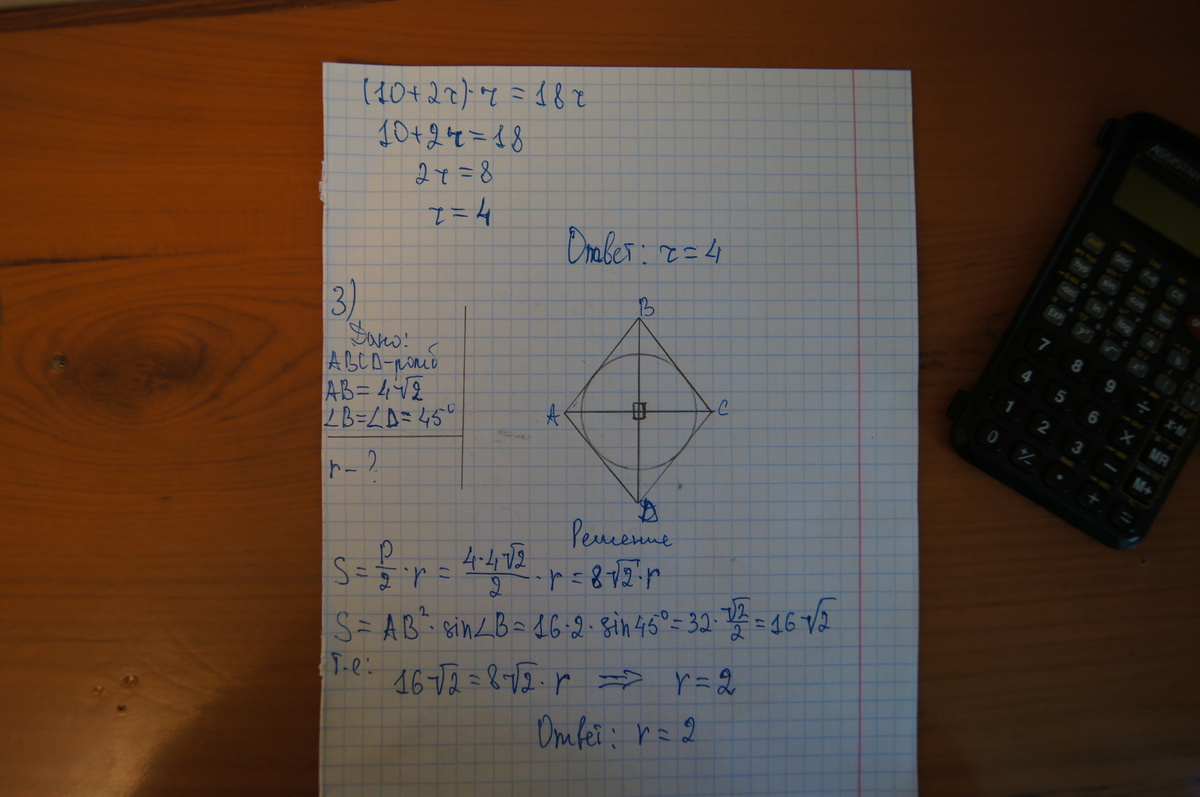 (10+2r)·r=18r
10+2r=18
2r=8
r=4
Ответ: r=4
3)
Дано:
ABCD-ромб
AB=4√2
∠B=∠D=45°
r-?
B
A
C
D
Решение
S=P/2·r=4·4√2/2·r=8√2·r
S=AB²·sin∠B=16·2·sin45°=32·√2/2=16√2
Т.е:
16√2=8√2·r ⟹ r=2
Ответ: r=2
7 8 9 ÷
4 5 6 × MR
1 2 3 − M+
0 +/− · + =